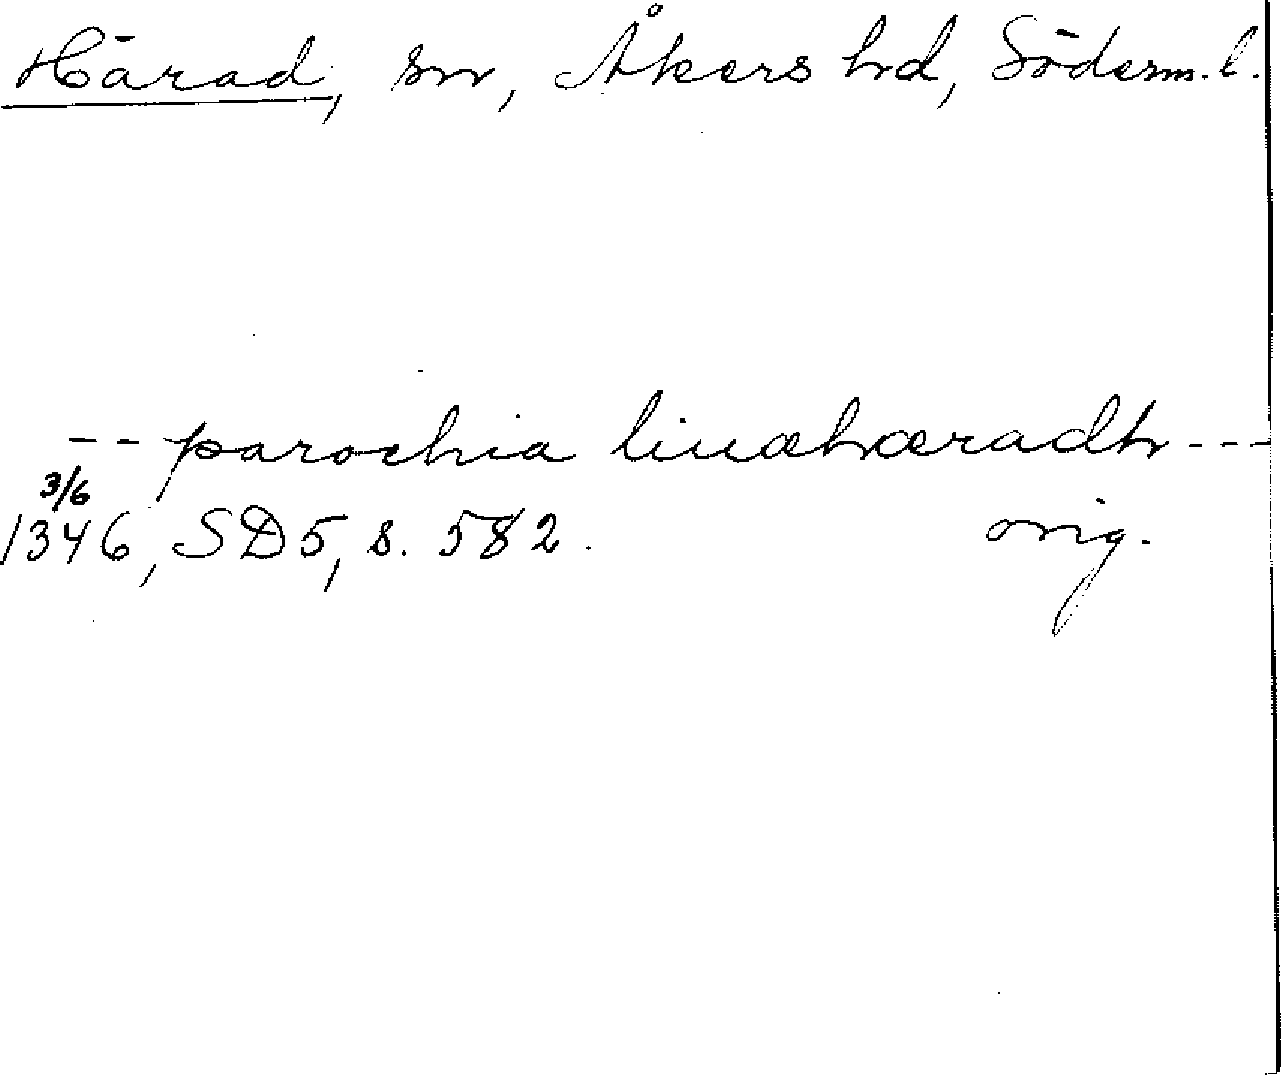 Härad, sn, Åkers hd, Söderm. l.
-- parochia liuæhæradh ---
3/6
1346, SD5, s. 582. orig.